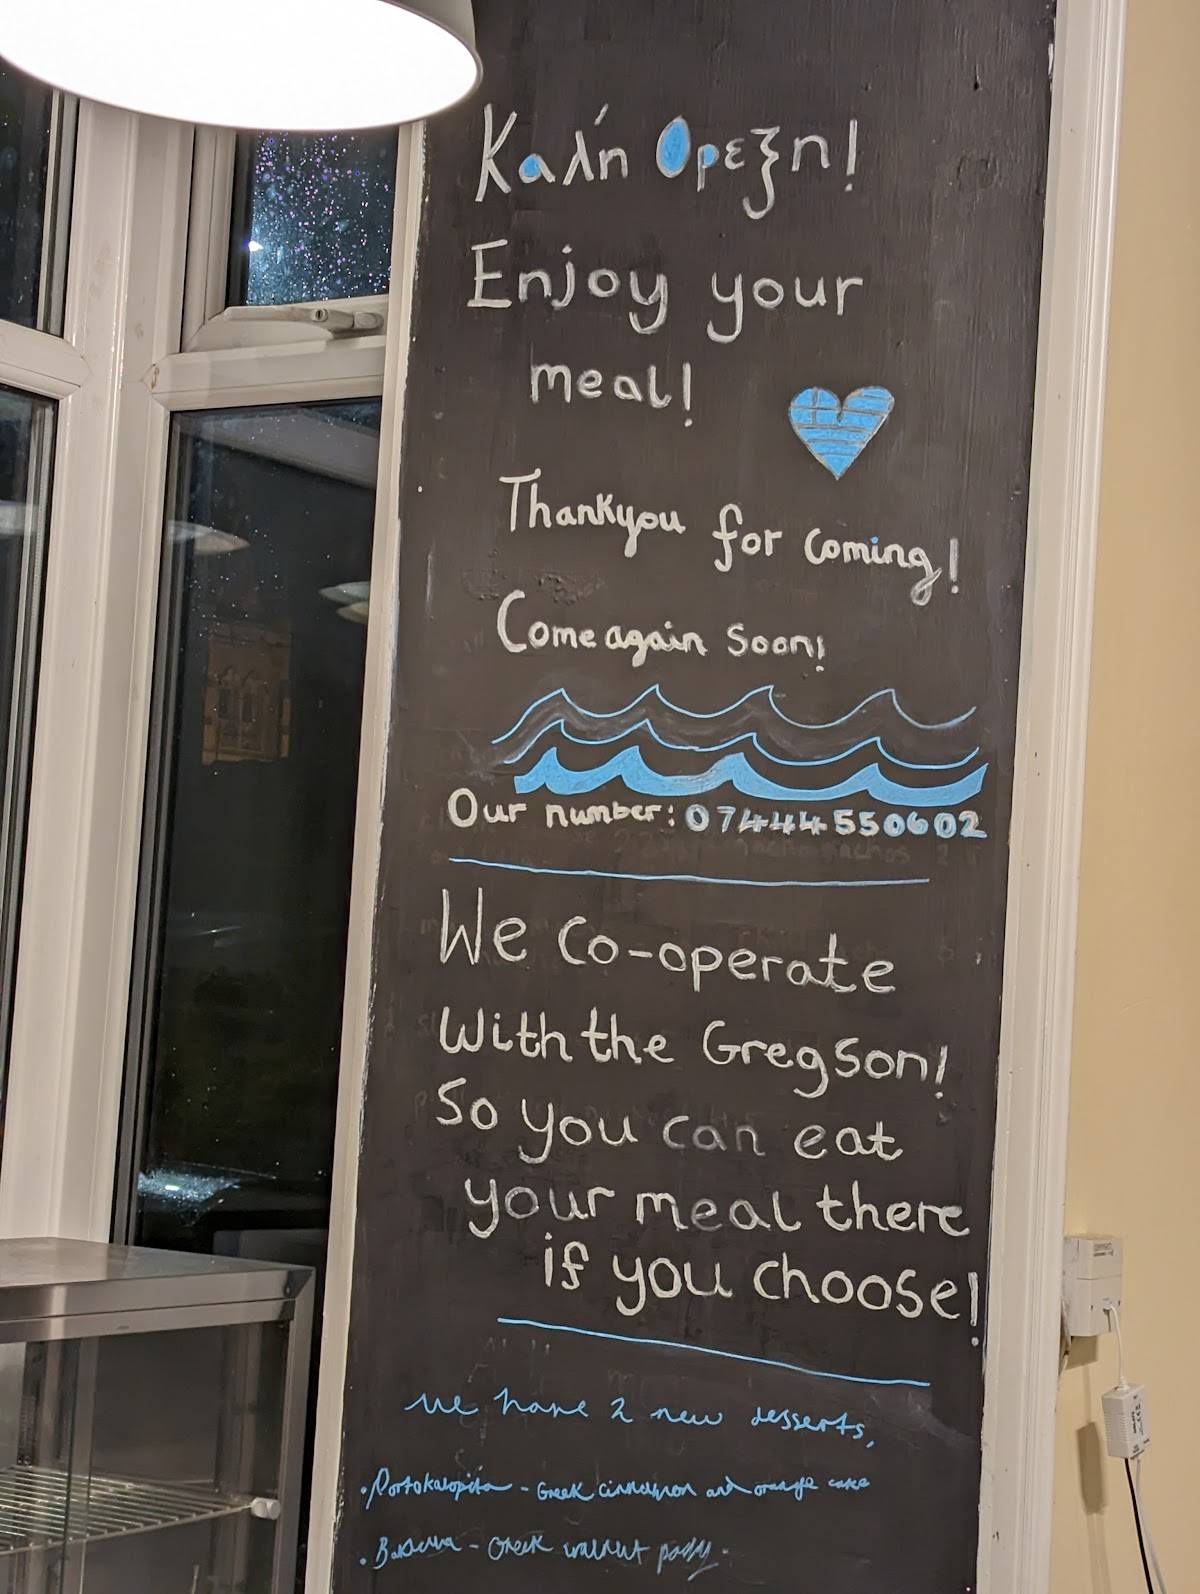 Καλή Ορεξη!
Enjoy your
meal!
Thankyou for coming!
Come again soon!
Our number: 07444550602
We co-operate
with the Gregson!
So you can eat
your meal there
if you choose!
We have 2 new desserts,
• Portokalopita - Greek cinnamon and orange cake
• - Greek walnut